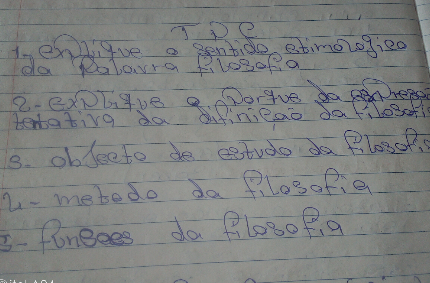 T P C
1- explique o sentido etimologico
da Palavra filosofia
2- explique o Porque da
tentativa da difinicao da filosofi
3- objecto de estudo da filosofi
4- metodo da filosofia
5- funcoes da filosofia